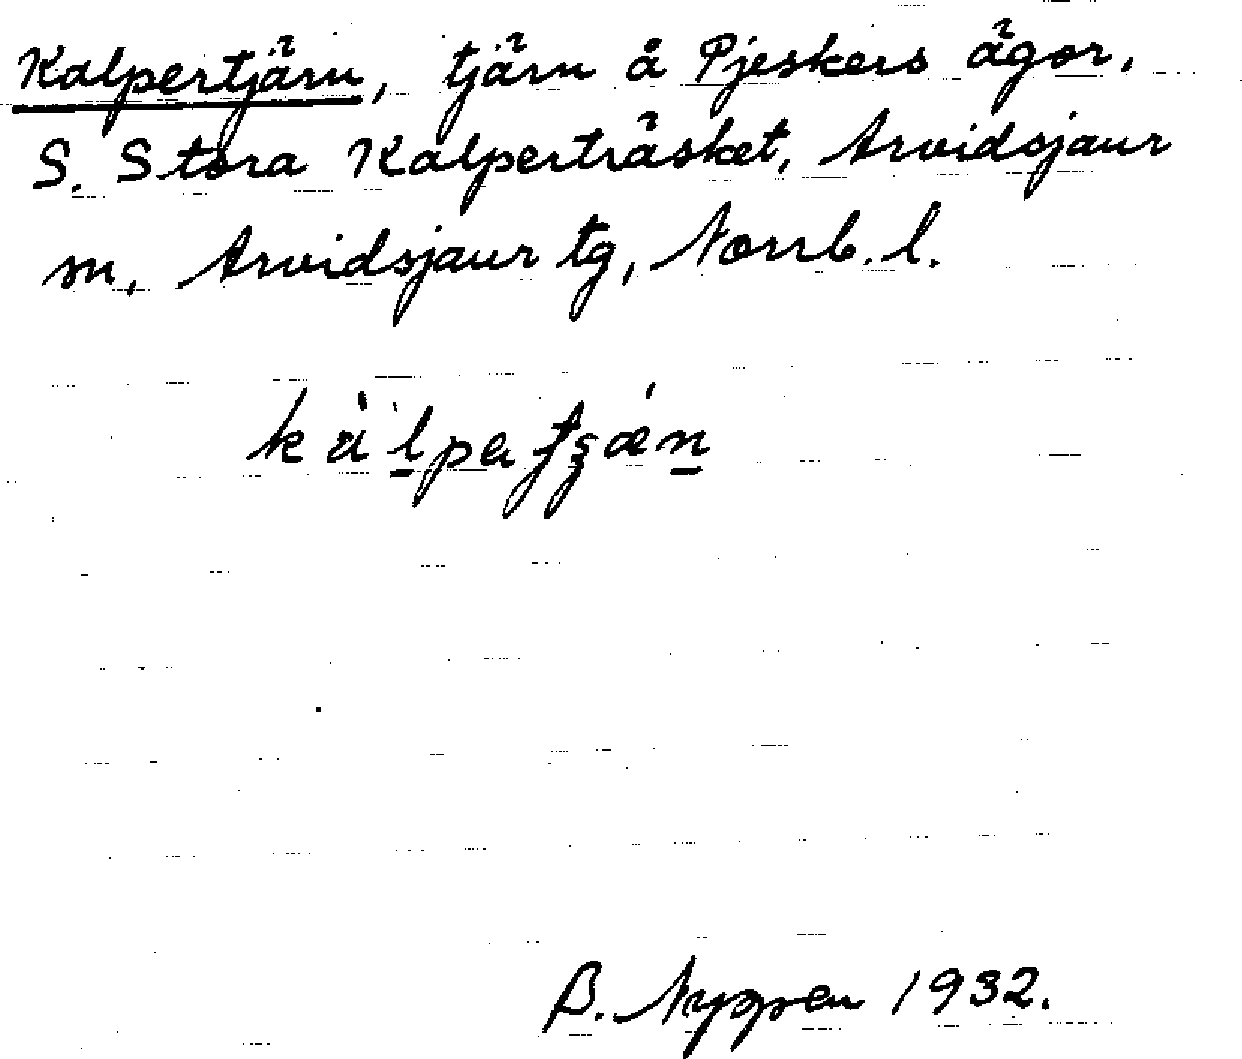 Kalpertjärn, tjärn å Pjeskers ägor,
S. Stora Kalperträsket, Arvidsjaur
m, Arvidsjaur tg, Norrb. l.
B. Nyppen 1932.